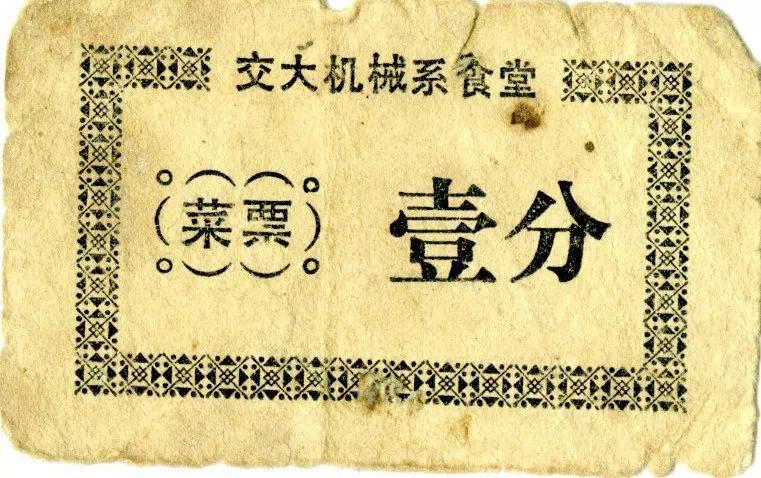 交大机械系食堂
菜票
壹分